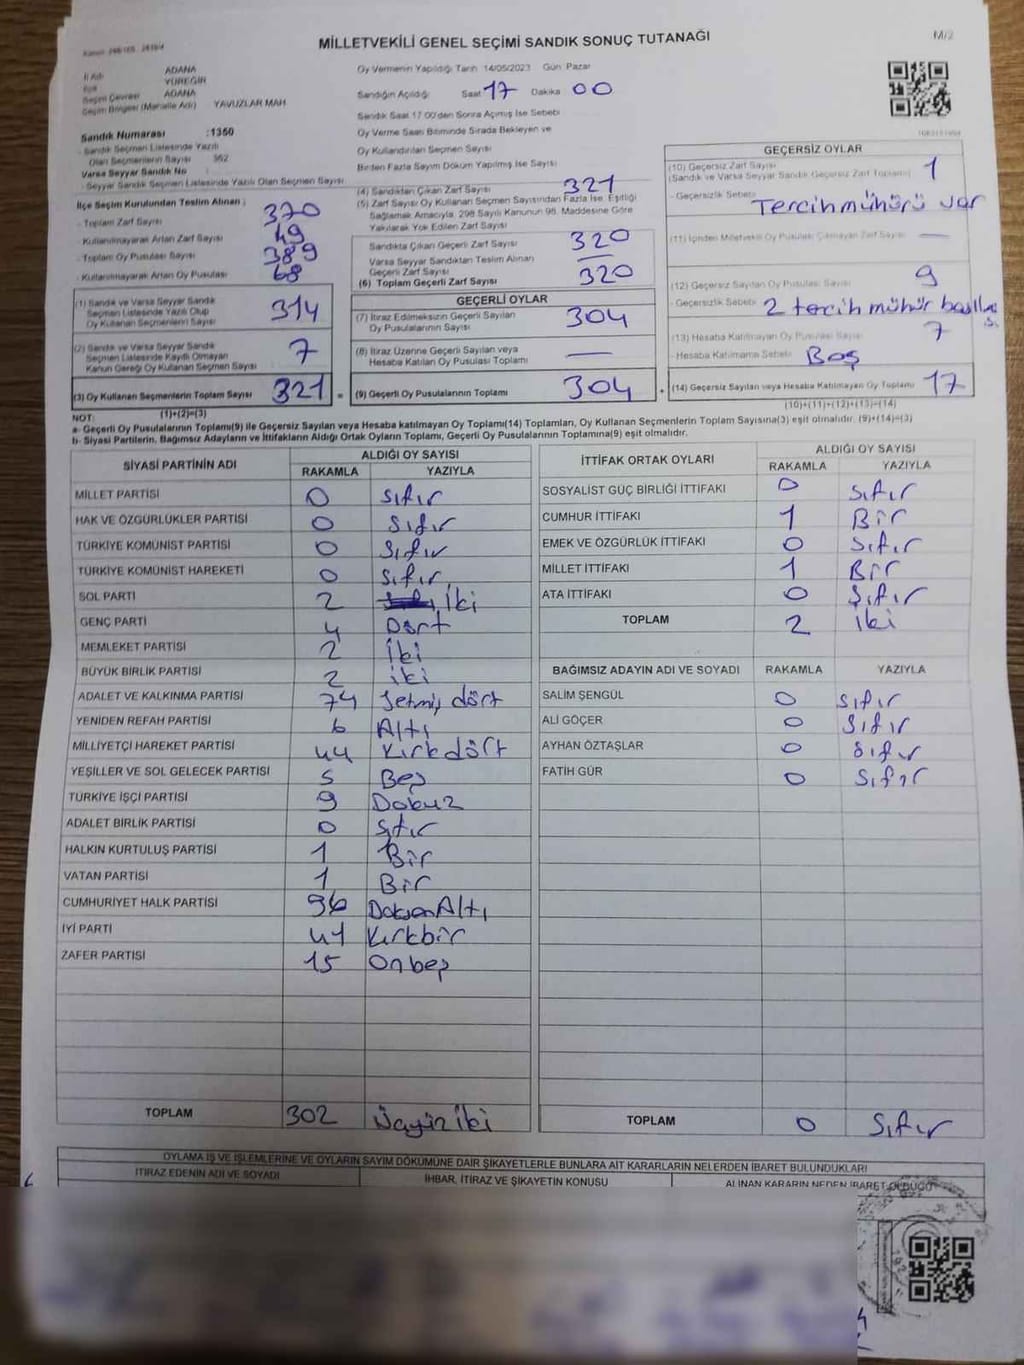 MİLLETVEKİLİ GENEL SEÇİMİ SANDIK SONUÇ TUTANAĞI
M/2
İl Adı ADANA
İlçe YÜREĞİR
Seçim Çevresi ADANA
Seçim Bölgesi (Mahalle Adı) YAVUZLAR MAH
Sandık Numarası :1350
- Sandık Seçmen Listesinde Yazılı
Olan Seçmenlerin Sayısı 362
Varsa Seyyar Sandık No
- Seyyar Sandık Listesinde Yazılı Olan Seçmen Sayısı
İlçe Seçim Kurulundan Teslim Alınan ;
- Toplam Zarf Sayısı 370
- Kullanılmayarak Artan Zarf Sayısı 49
- Toplam Oy Pusulası Sayısı 389
- Kullanılmayarak Artan Oy Pusulası 68
(1) Sandık ve Varsa Seyyar Sandık
Seçmen Listesinde Yazılı Olup
Oy Kullanan Seçmenlerin Sayısı 314
(2) Sandık ve Varsa Seyyar Sandık
Seçmen Listesinde Kayıtlı Olmayan
Kanun Gereği Oy Kullanan Seçmen Sayısı 7
(3) Oy Kullanan Seçmenlerin Toplam Sayısı 321 =
(1)+(2)=(3)
Oy Vermenin Yapıldığı Tarih 14/05/2023 Gün Pazar
Sandığın Açıldığı Saat 17 Dakika 00
Sandık Saat 17.00'den Sonra Açılmış İse Sebebi
Oy Verme Saati Bitiminde Sırada Bekleyen ve
Oy Kullandırılan Seçmen Sayısı
Birden Fazla Sayım Döküm Yapılmış İse Sayısı
(4) Sandıktan Çıkan Zarf Sayısı 321
(5) Zarf Sayısı Oy Kullanan Seçmen Sayısından Fazla İse, Eşitliği
Sağlamak Amacıyla, 298 Sayılı Kanunun 98. Maddesine Göre
Yakılarak Yok Edilen Zarf Sayısı
Sandıkta Çıkan Geçerli Zarf Sayısı 320
Varsa Seyyar Sandıktan Teslim Alınan
Geçerli Zarf Sayısı
(6) Toplam Geçerli Zarf Sayısı 320
GEÇERLİ OYLAR
(7) İtiraz Edilmeksizin Geçerli Sayılan
Oy Pusulalarının Sayısı 304
(8) İtiraz Üzerine Geçerli Sayılan veya
Hesaba Katılan Oy Pusulası Toplamı —
(9) Geçerli Oy Pusulalarının Toplamı 304 +
GEÇERSİZ OYLAR
(10) Geçersiz Zarf Sayısı
(Sandık ve Varsa Seyyar Sandık Geçersiz Zarf Toplamı) 1
- Geçersizlik Sebebi Tercih mühürü var
(11) İçinden Milletvekili Oy Pusulası Çıkmayan Zarf Sayısı —
(12) Geçersiz Sayılan Oy Pusulası Sayısı 9
- Geçersizlik Sebebi 2 tercih mühür
(13) Hesaba Katılmayan Oy Pusulası Sayısı 7
- Hesaba Katılmama Sebebi Boş
(14) Geçersiz Sayılan veya Hesaba Katılmayan Oy Toplamı 17
(10)+(11)+(12)+(13)=(14)
NOT:
a- Geçerli Oy Pusulalarının Toplamı(9) ile Geçersiz Sayılan veya Hesaba katılmayan Oy Toplamı(14) Toplamları, Oy Kullanan Seçmenlerin Toplam Sayısına(3) eşit olmalıdır. (9)+(14)=(3)
b- Siyasi Partilerin, Bağımsız Adayların ve İttifakların Aldığı Ortak Oyların Toplamı, Geçerli Oy Pusulalarının Toplamına(9) eşit olmalıdır.
SİYASİ PARTİNİN ADI ALDIĞI OY SAYISI
RAKAMLA YAZIYLA
MİLLET PARTİSİ 0 Sıfır
HAK VE ÖZGÜRLÜKLER PARTİSİ 0 Sıfır
TÜRKİYE KOMÜNİST PARTİSİ 0 Sıfır
TÜRKİYE KOMÜNİST HAREKETİ 0 Sıfır
SOL PARTİ 2 İki
GENÇ PARTİ 4 Dört
MEMLEKET PARTİSİ 2 İki
BÜYÜK BİRLİK PARTİSİ 2 iki
ADALET VE KALKINMA PARTİSİ 74 Yetmiş dört
YENİDEN REFAH PARTİSİ 6 Altı
MİLLİYETÇİ HAREKET PARTİSİ 44 Kırkdört
YEŞİLLER VE SOL GELECEK PARTİSİ 5 Beş
TÜRKİYE İŞÇİ PARTİSİ 9 Dokuz
ADALET BİRLİK PARTİSİ 0 Sıfır
HALKIN KURTULUŞ PARTİSİ 1 Bir
VATAN PARTİSİ 1 Bir
CUMHURİYET HALK PARTİSİ 96 Doksan Altı
İYİ PARTİ 41 Kırkbir
ZAFER PARTİSİ 15 Onbeş
TOPLAM 302 Üçyüz iki
İTTİFAK ORTAK OYLARI ALDIĞI OY SAYISI
RAKAMLA YAZIYLA
SOSYALİST GÜÇ BİRLİĞİ İTTİFAKI 0 Sıfır
CUMHUR İTTİFAKI 1 Bir
EMEK VE ÖZGÜRLÜK İTTİFAKI 0 Sıfır
MİLLET İTTİFAKI 1 Bir
ATA İTTİFAKI 0 Sıfır
TOPLAM 2 iki
BAĞIMSIZ ADAYIN ADI VE SOYADI RAKAMLA YAZIYLA
SALİM ŞENGÜL 0 Sıfır
ALİ GÖÇER 0 Sıfır
AYHAN ÖZTAŞLAR 0 Sıfır
FATİH GÜR 0 Sıfır
TOPLAM 0 Sıfır
OYLAMA İŞ VE İŞLEMLERİNE VE OYLARIN SAYIM DÖKÜMÜNE DAİR ŞİKAYETLERLE BUNLARA AİT KARARLARIN NELERDEN İBARET BULUNDUKLARI
İTİRAZ EDENİN ADI VE SOYADI İHBAR, İTİRAZ VE ŞİKAYETİN KONUSU ALINAN KARARIN NEDEN İBARET OLDUĞU